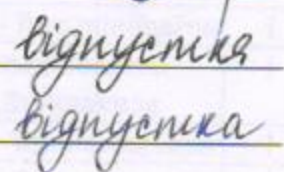 відпустка
відпустка